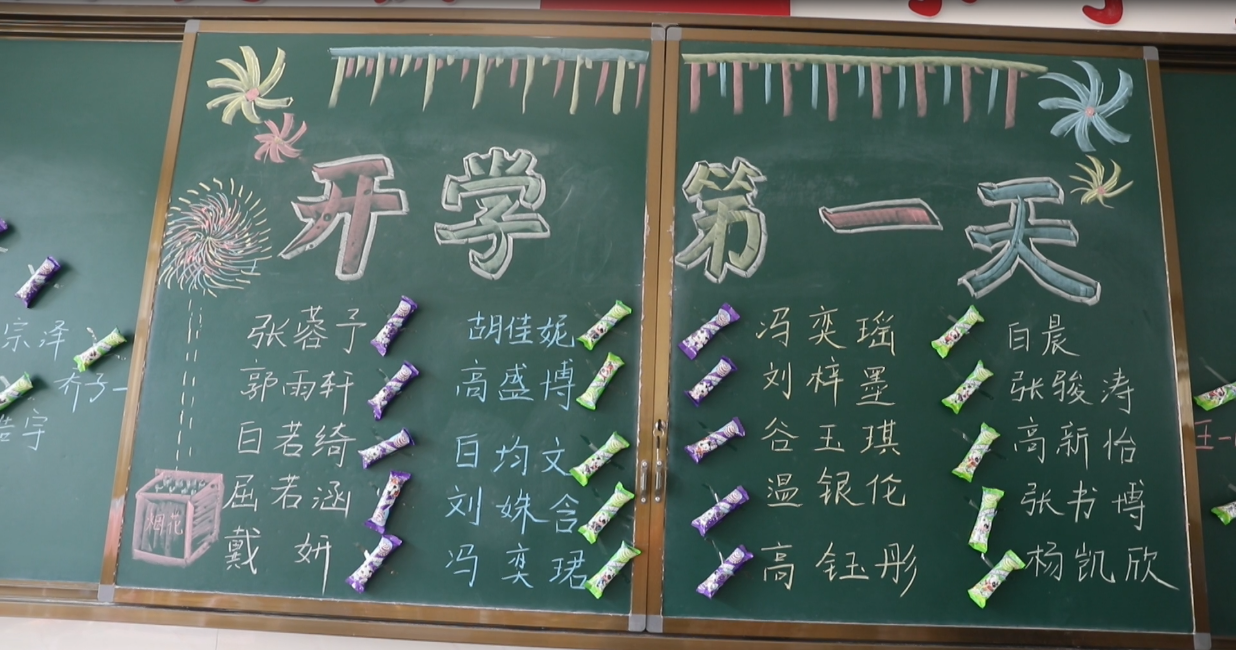 开学第一天
张蓉予 胡佳妮 冯奕瑶 白晨
郭雨轩 高盛博 刘梓墨 张骏涛
白若绮 白均文 谷玉琪 高新怡
屈若涵 刘姝含 温银伦 张书博
戴妍 冯奕珺 高钰彤 杨凯欣
烟花
宗泽
浩宇